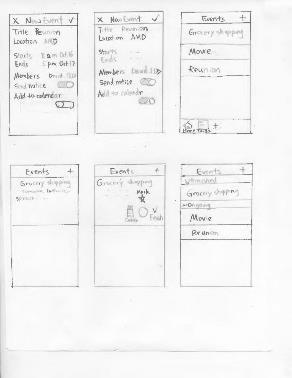 X New Event ✓
Title Reunion
Location AMD
Starts 8 am Oct 16
Ends 5 pm Oct 17
Members David
Send notice
Add to calendar
X New Event ✓
Title Reunion
Location AMD
Starts
Ends
Members David
Send notice
Add to calendar
Events
Grocery shopping
Movie
Reunion
Home
+
Events +
Grocery shopping
Events +
Grocery shopping
Mark
Delete
Finish
Events +
Grocery shopping
Ongoing
Movie
Reunion